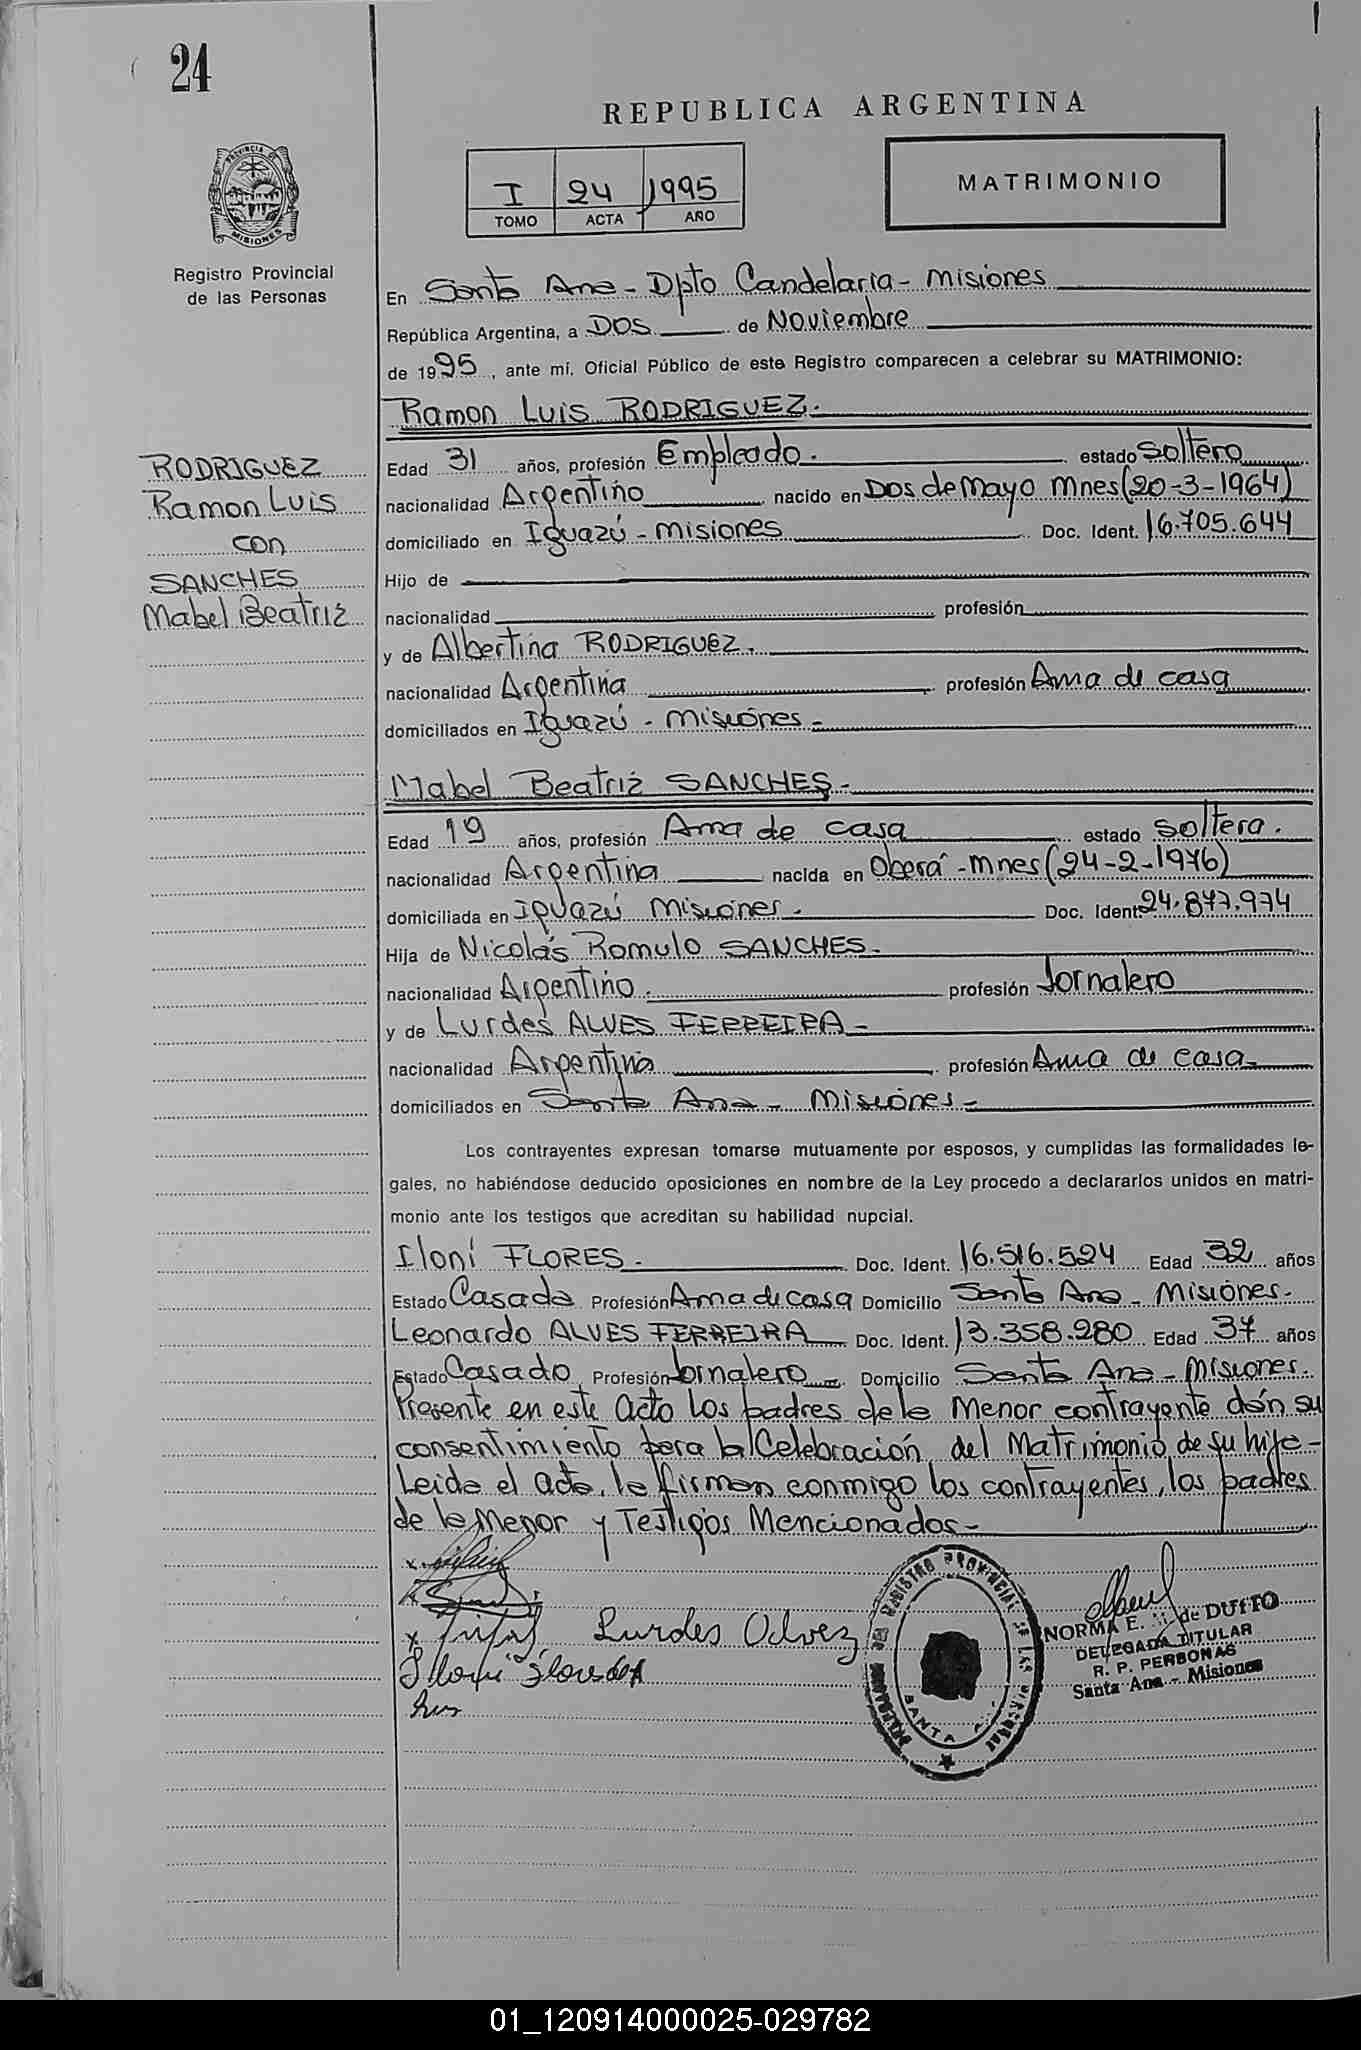 24
REPUBLICA ARGENTINA
PROVINCIA DE MISIONES
Registro Provincial
de las Personas
I 24 1995
TOMO ACTA AÑO
MATRIMONIO
En Santa Ana - Dpto Candelaria - Misiones
República Argentina, a DOS de Noviembre
de 1995, ante mí, Oficial Público de este Registro comparecen a celebrar su MATRIMONIO:
Ramon Luis RODRIGUEZ.
RODRIGUEZ
Ramon Luis
con
SANCHES
Mabel Beatriz
Edad 31 años, profesión Empleado. estado soltero
nacionalidad Argentino nacido en Dos de Mayo Mnes (20-3-1964)
domiciliado en Iguazú - Misiones Doc. Ident. 16.705.644
Hijo de
nacionalidad profesión
y de Albertina RODRIGUEZ.
nacionalidad Argentina profesión Ama de casa
domiciliados en Iguazú - Misiones -
Mabel Beatriz SANCHES -
Edad 19 años, profesión Ama de casa estado soltera.
nacionalidad Argentina nacida en Oberá - Mnes (24-2-1976)
domiciliada en Iguazú Misiones - Doc. Ident. 24.847.974
Hija de Nicolás Romulo SANCHES -
nacionalidad Argentino. profesión Jornalero
y de Lurdes ALVES FERREIRA -
nacionalidad Argentina profesión Ama de casa -
domiciliados en Santa Ana - Misiones -
Los contrayentes expresan tomarse mutuamente por esposos, y cumplidas las formalidades le-
gales, no habiéndose deducido oposiciones en nombre de la Ley procedo a declararlos unidos en matri-
monio ante los testigos que acreditan su habilidad nupcial.
Iloni FLORES. Doc. Ident. 16.516.524 Edad 32 años
Estado Casada Profesión Ama de casa Domicilio Santa Ana - Misiones -
Leonardo ALVES FERREIRA Doc. Ident. 13.358.280 Edad 37 años
Estado Casado Profesión Jornalero Domicilio Santa Ana - Misiones.
Presente en este acto los padres de la Menor contrayente dán su
consentimiento para la Celebración del Matrimonio de su hija -
Leida el acta, la firman conmigo los contrayentes, los padres
de la Menor y Testigos Mencionados -
Lurdes Odvez
REGISTRO PROVINCIAL DE LAS PERSONAS
SANTA
NORMA E. de DUFFO
DELEGADA TITULAR
R. P. PERSONAS
Santa Ana - Misiones
01_120914000025-029782